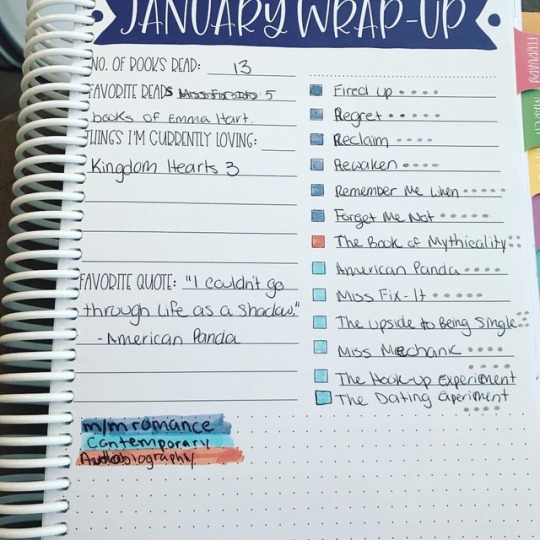 JANUARY WRAP-UP
NO. OF BOOKS READ: 13
FAVORITE READS 5
books of Emma Hart.
THINGS I'M CURRENTLY LOVING:
Kingdom Hearts 3
FAVORITE QUOTE: "I couldn't go
through life as a shadow."
- American Panda
m/m romance
Contemporary
Autobiography
Fired up
Regret
Reclaim
Reawaken
Remember Me When
Forget Me Not
The Book of Mythicality
American Panda
Miss Fix-It
The upside to Being Single
Miss Mechanic
The Hook-up Experiment
The Dating Experiment
FEBRUARY
MARCH